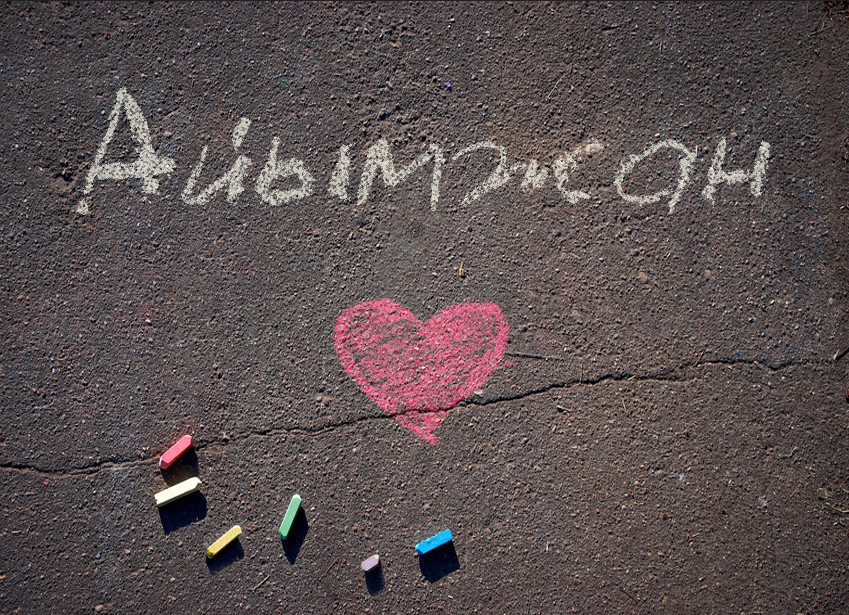 Айымжан